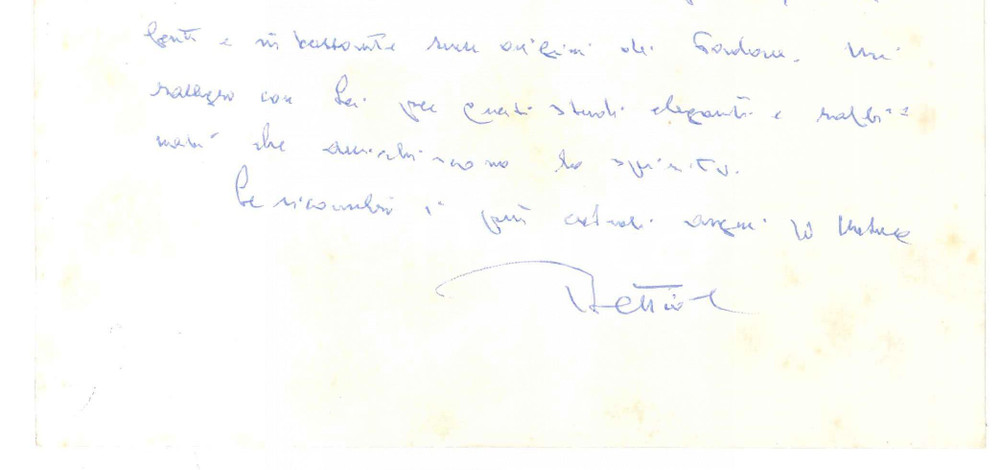 e interessante sulle origini di Padova. Mi
rallegro con Lei per questi studi eleganti e raffi=
nati che arricchiscono lo spirito.
Le ricambio i più cordiali auguri di Natale
Bettiol